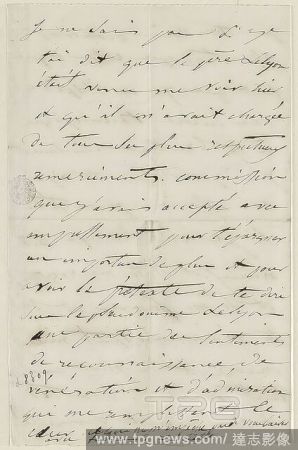 Je ne sais pas si je
t'ai dit que le père Lyon
était venu me voir hier
et qu'il m'avait chargée
de tous ses plus respectueux
remerciements. commission
que j'avais acceptée avec
empressement pour t'épargner
un importun de plus et pour
avoir le prétexte de te dire
sous le pseudonyme de Lyon
une partie des sentiments
de reconnaissance, de
vénération et d'admiration
que me remplissent le
cœur
TPG
www.tpgnews.com/達志影像